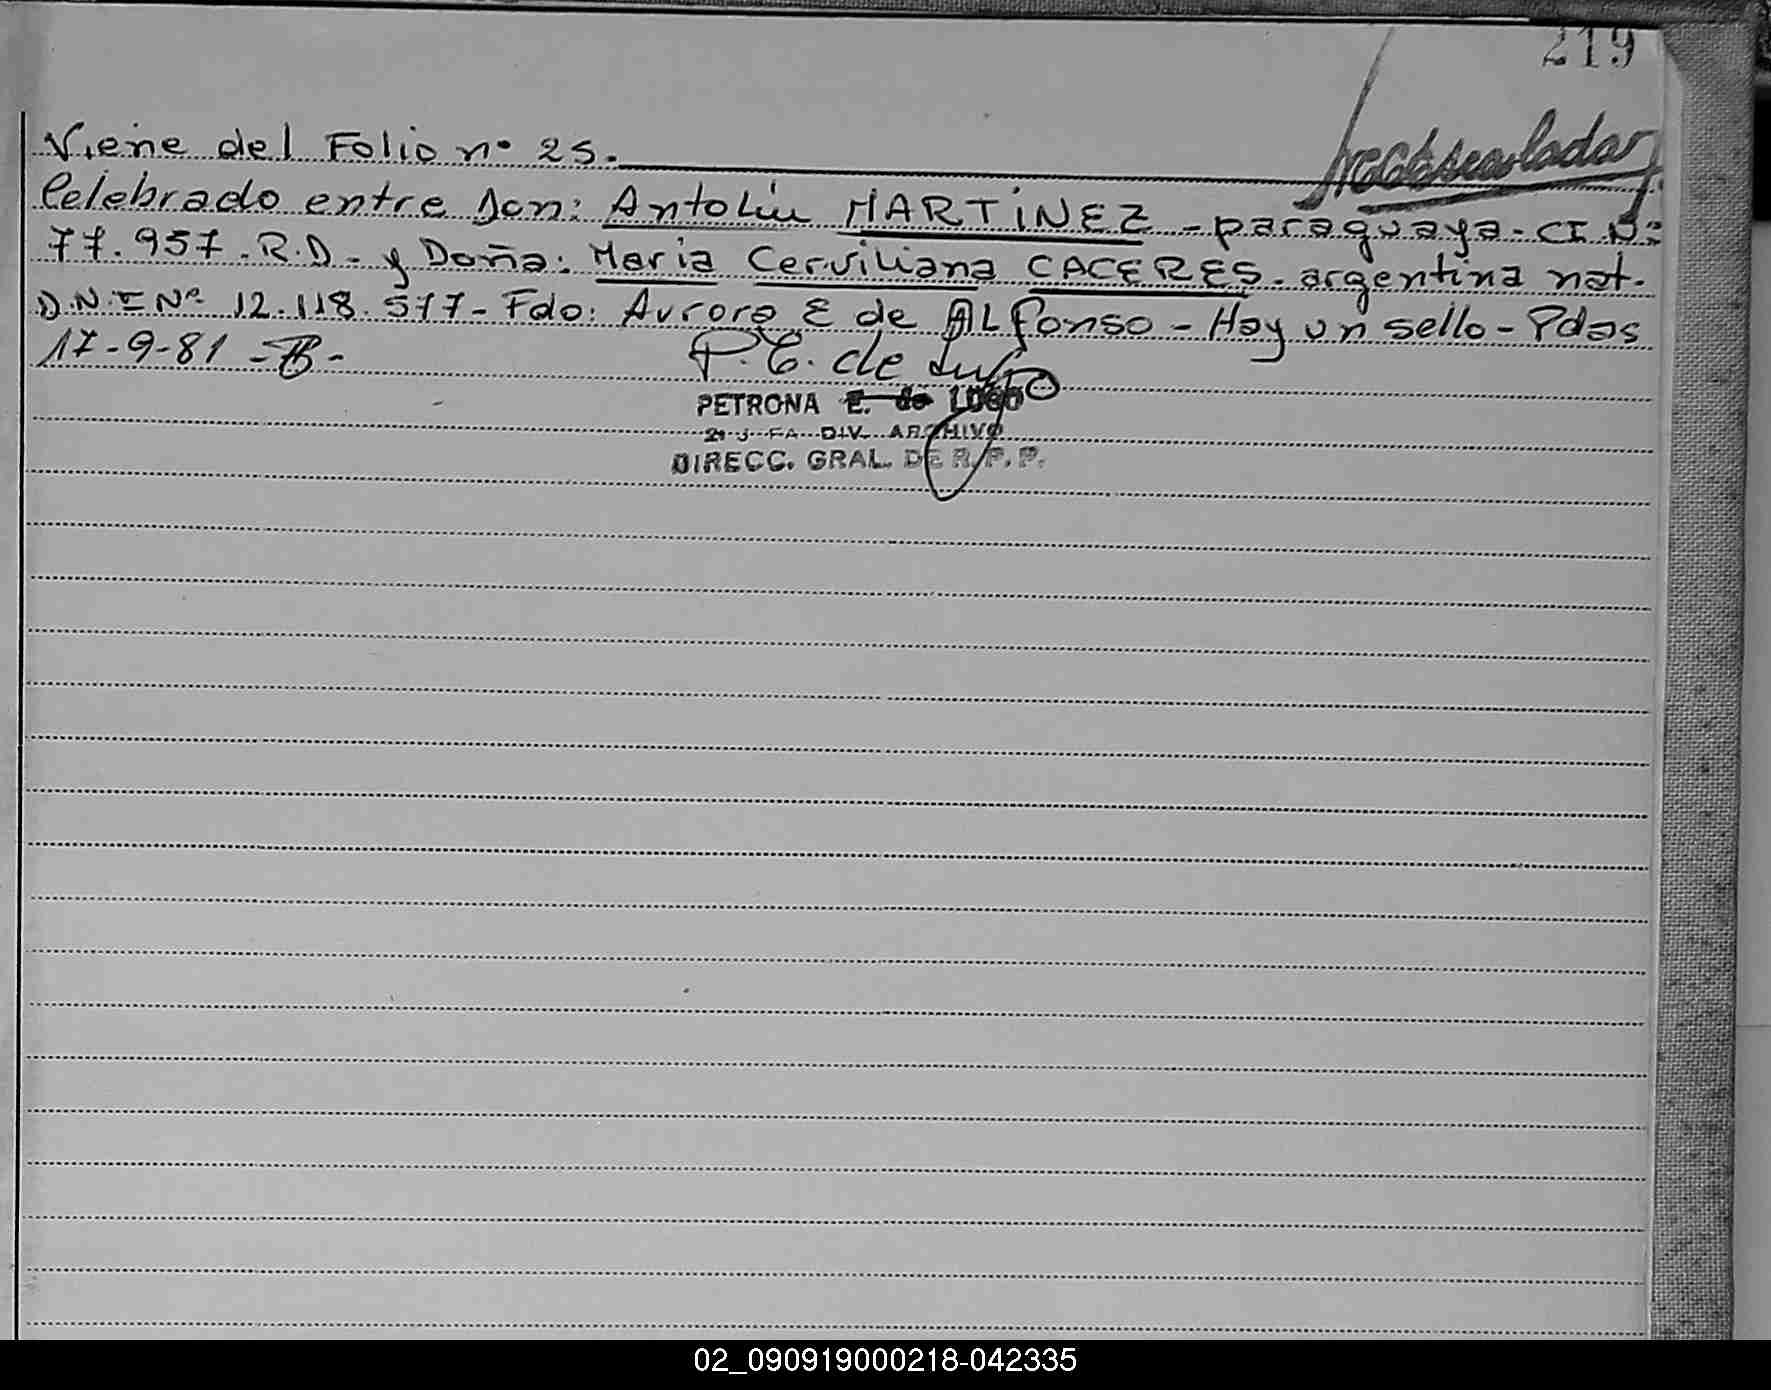 219
Viene del Folio nº 25.
Celebrado entre Don: Antolin MARTINEZ - paraguaya - C.I.Nº
77.957. R.D. - y Doña: Maria Cerviliana CACERES - argentina nat.
D.N.I Nº 12.118.577 - Fdo: Aurora E de ALFonso - Hay un sello - Pdas
17-9-81 -
P. E. de Lugo
PETRONA E. de LUGO
DIV. ARCHIVO
DIRECC. GRAL. DE R. P. P.
02_090919000218-042335